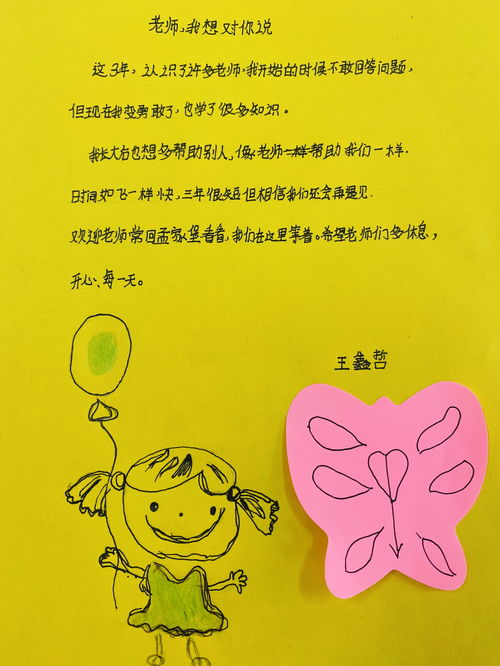 老师,我想对你说
这3年，认识了许多老师.我开始的时候不敢回答问题,
但现在我变勇敢了，也学了很多知识。
我长大后也想多帮助别人,像老师一样帮助我们一样.
时间如飞一样快,三年很短但相信我们还会再遇见.
欢迎老师常回孟家堡看看,我们在这里等着。希望老师们多休息，
开心、每一天。
王鑫哲